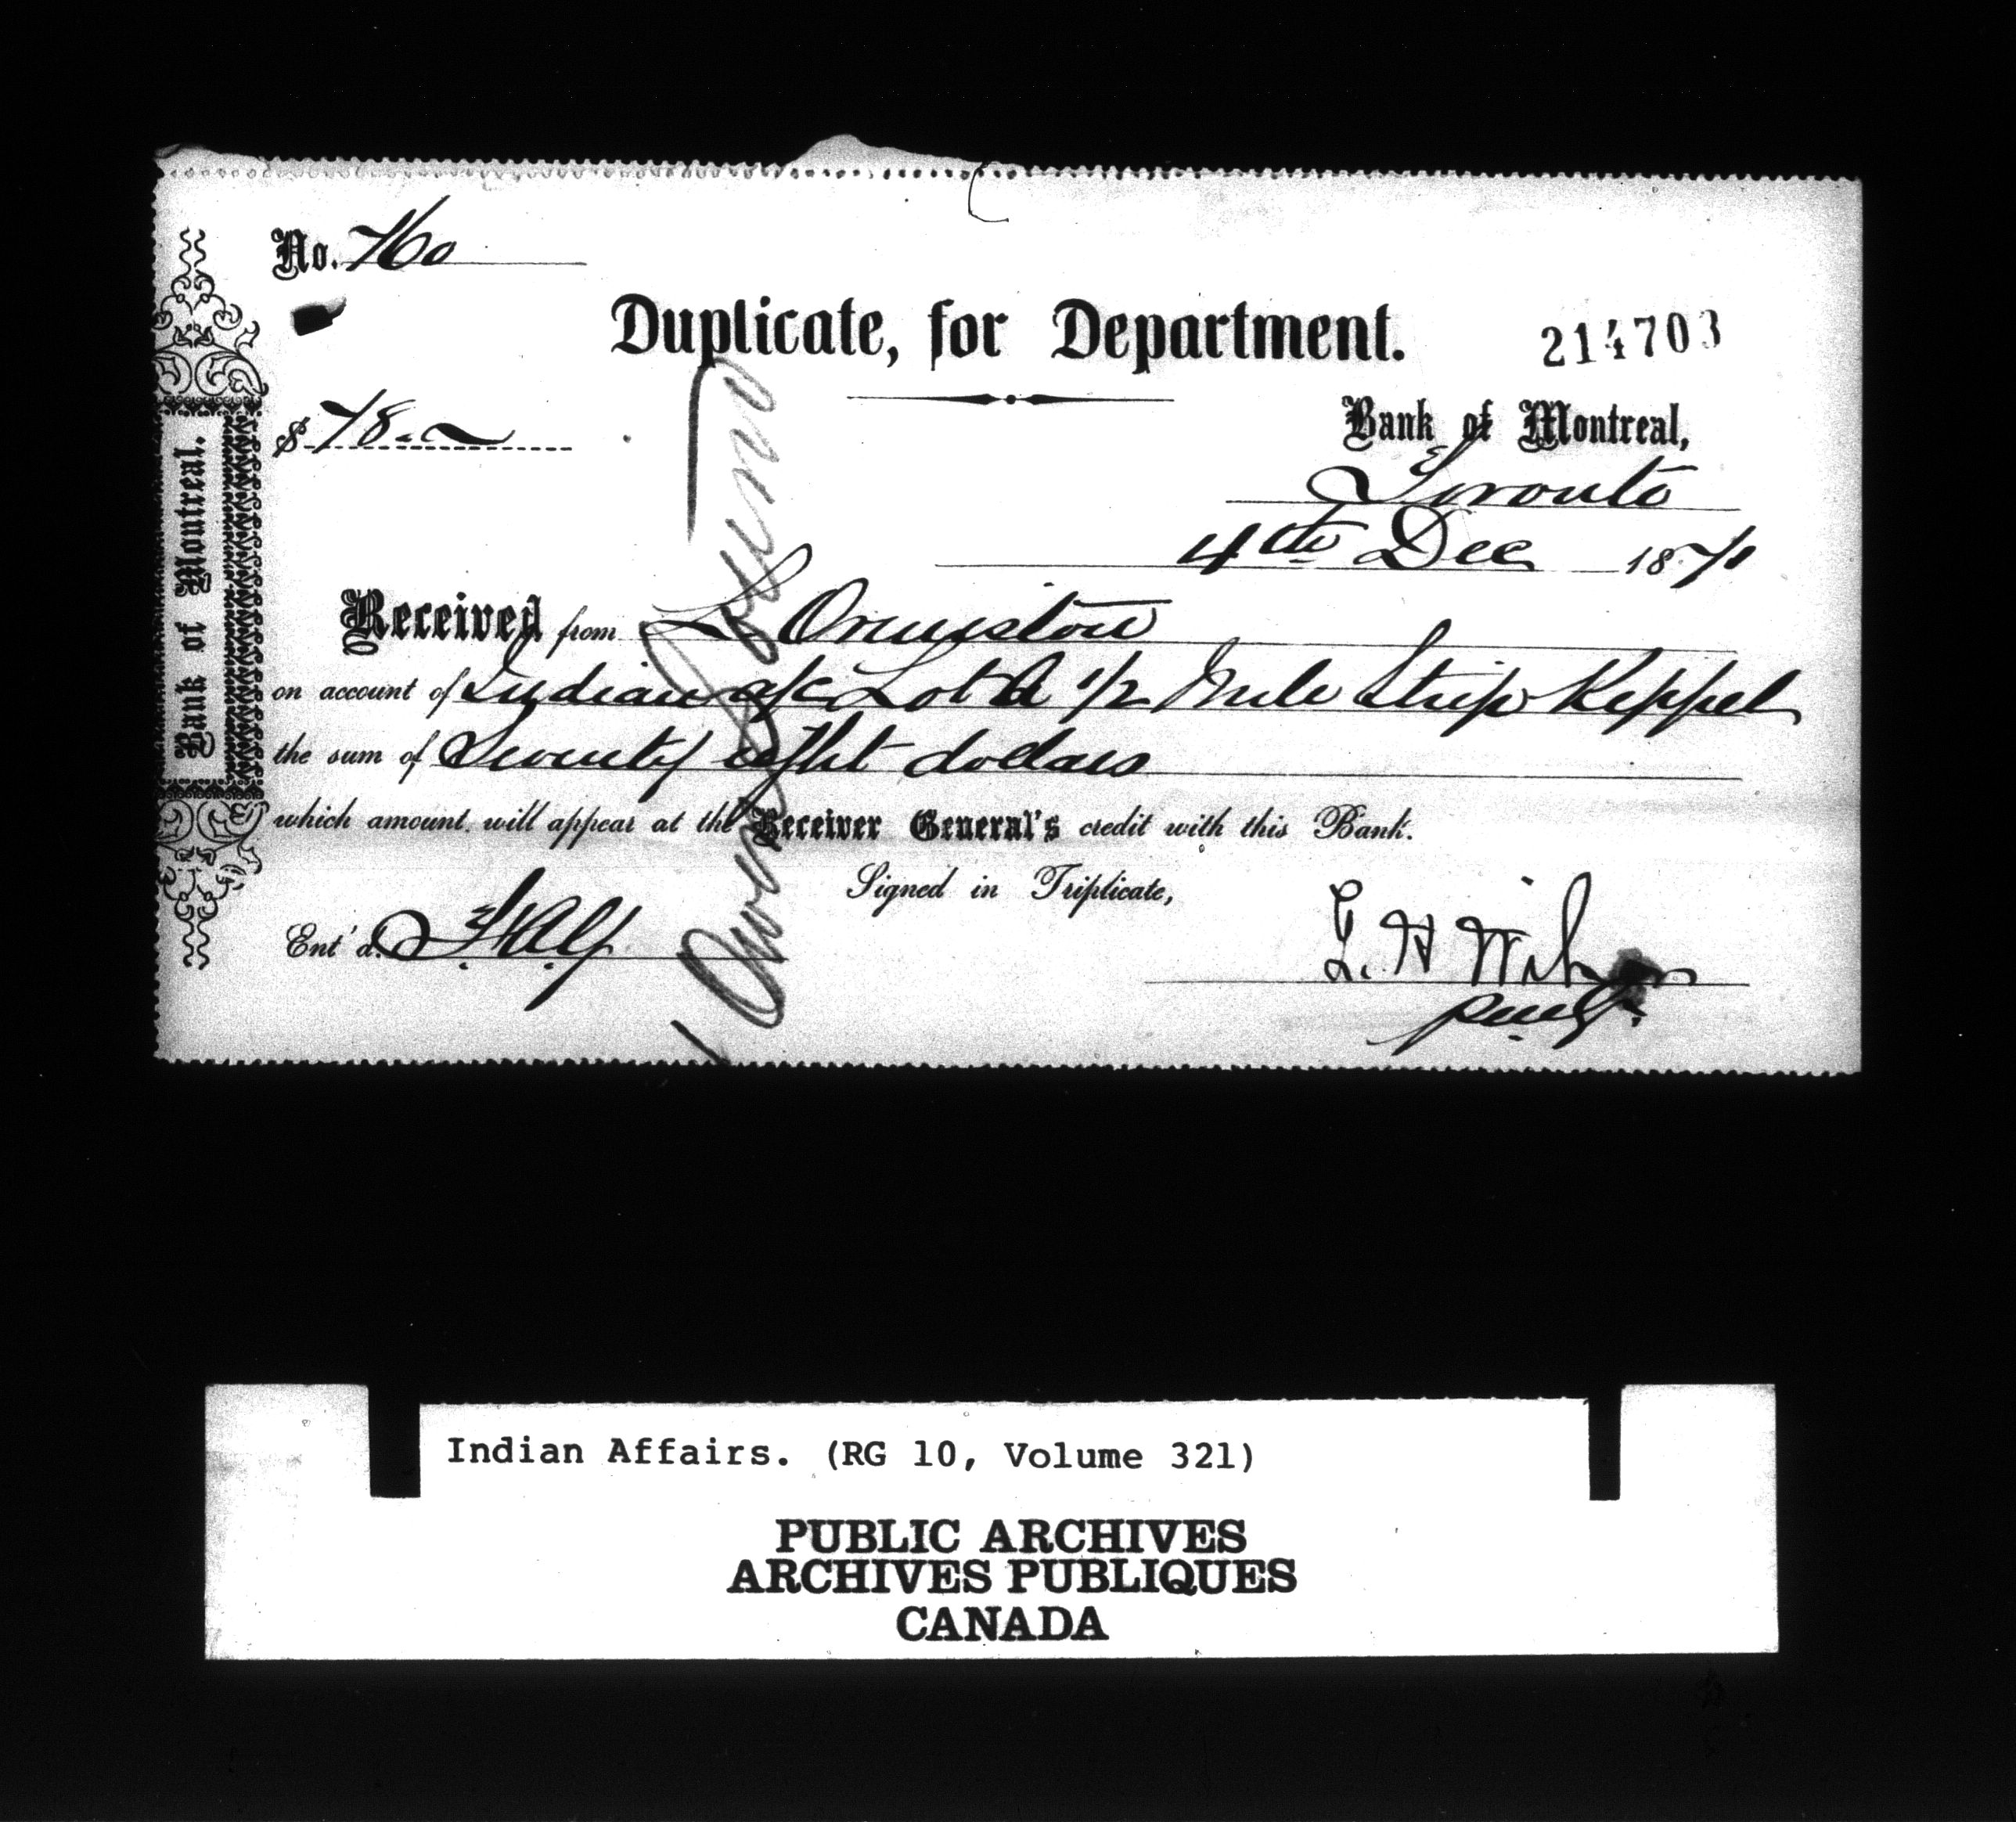 No. 760
Duplicate, for Department.
214703
$ 78.
Bank of Montreal,
Toronto
4th Dec 1871
Received from L Ormiston
on account of Indian a/c Lot A 1/2 Mile Strip Keppel
the sum of Seventy eight dollars
which amount will appear at the Receiver General's credit with this Bank.
Signed in Triplicate,
Ent'd.
Owen Sound
Bank of Montreal.
Indian Affairs. (RG 10, Volume 321)
PUBLIC ARCHIVES
ARCHIVES PUBLIQUES
CANADA